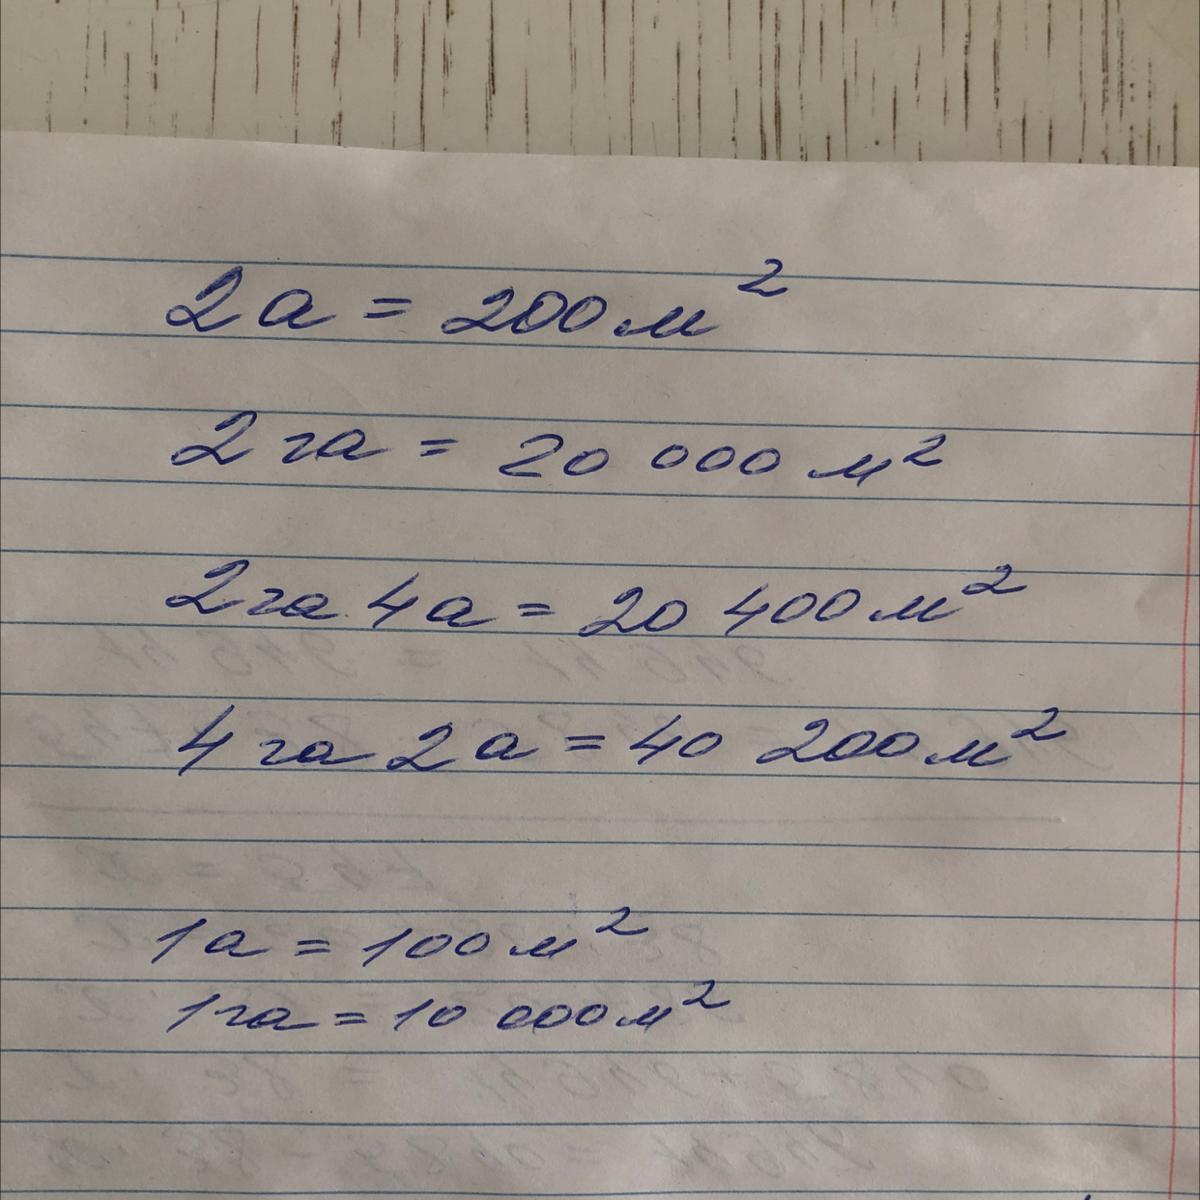 2 а = 200 м²
2 га = 20 000 м²
2 га 4 а = 20 400 м²
4 га 2 а = 40 200 м²
1 а = 100 м²
1 га = 10 000 м²